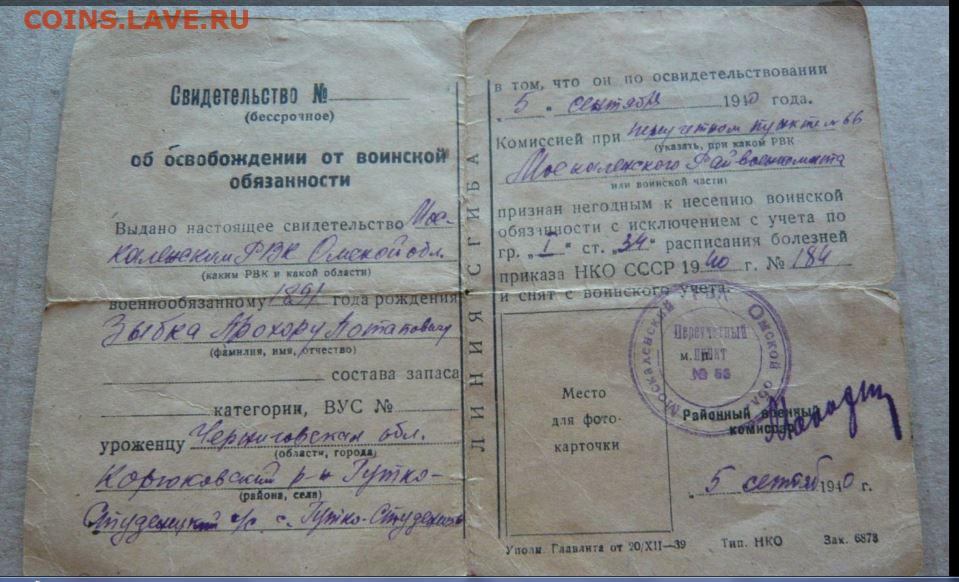 COINS.LAVE.RU
Свидетельство №
(бессрочное)
об освобождении от воинской
обязанности
Выдано настоящее свидетельство Мос-
каленским РВК Омской обл.
(каким РВК и какой области)
военнообязанному 1891 года рождения
Зыбка Прохору Потаповичу
(фамилия, имя, отчество)
состава запаса
категории, ВУС №
уроженцу Черниговская обл.
(области, города)
Корюковский р-н Гутко-
(района, села)
Студенецкий с/с с. Гутко-Студенецк
ЛИНИЯ СГИБА
в том, что он по освидетельствовании
"5" сентября 1940 года.
Комиссией при переучетном пункте № 66
(указать, при каком РВК
Москаленского Райвоенкомата
или воинской части)
признан негодным к несению воинской
обязанности с исключением с учета по
гр. "I" ст. "34" расписания болезней
приказа НКО СССР 1940 г. № 184
и снят с воинского учета.
Место
для фото-
карточки
м. п.
Москаленский РВК Омской обл.
Переучетный
пункт
№
Районный военный
комиссар
"5" сентября 1940 г.
Уполн. Главлита от 20/XII—39 Тип. НКО Зак. 6873